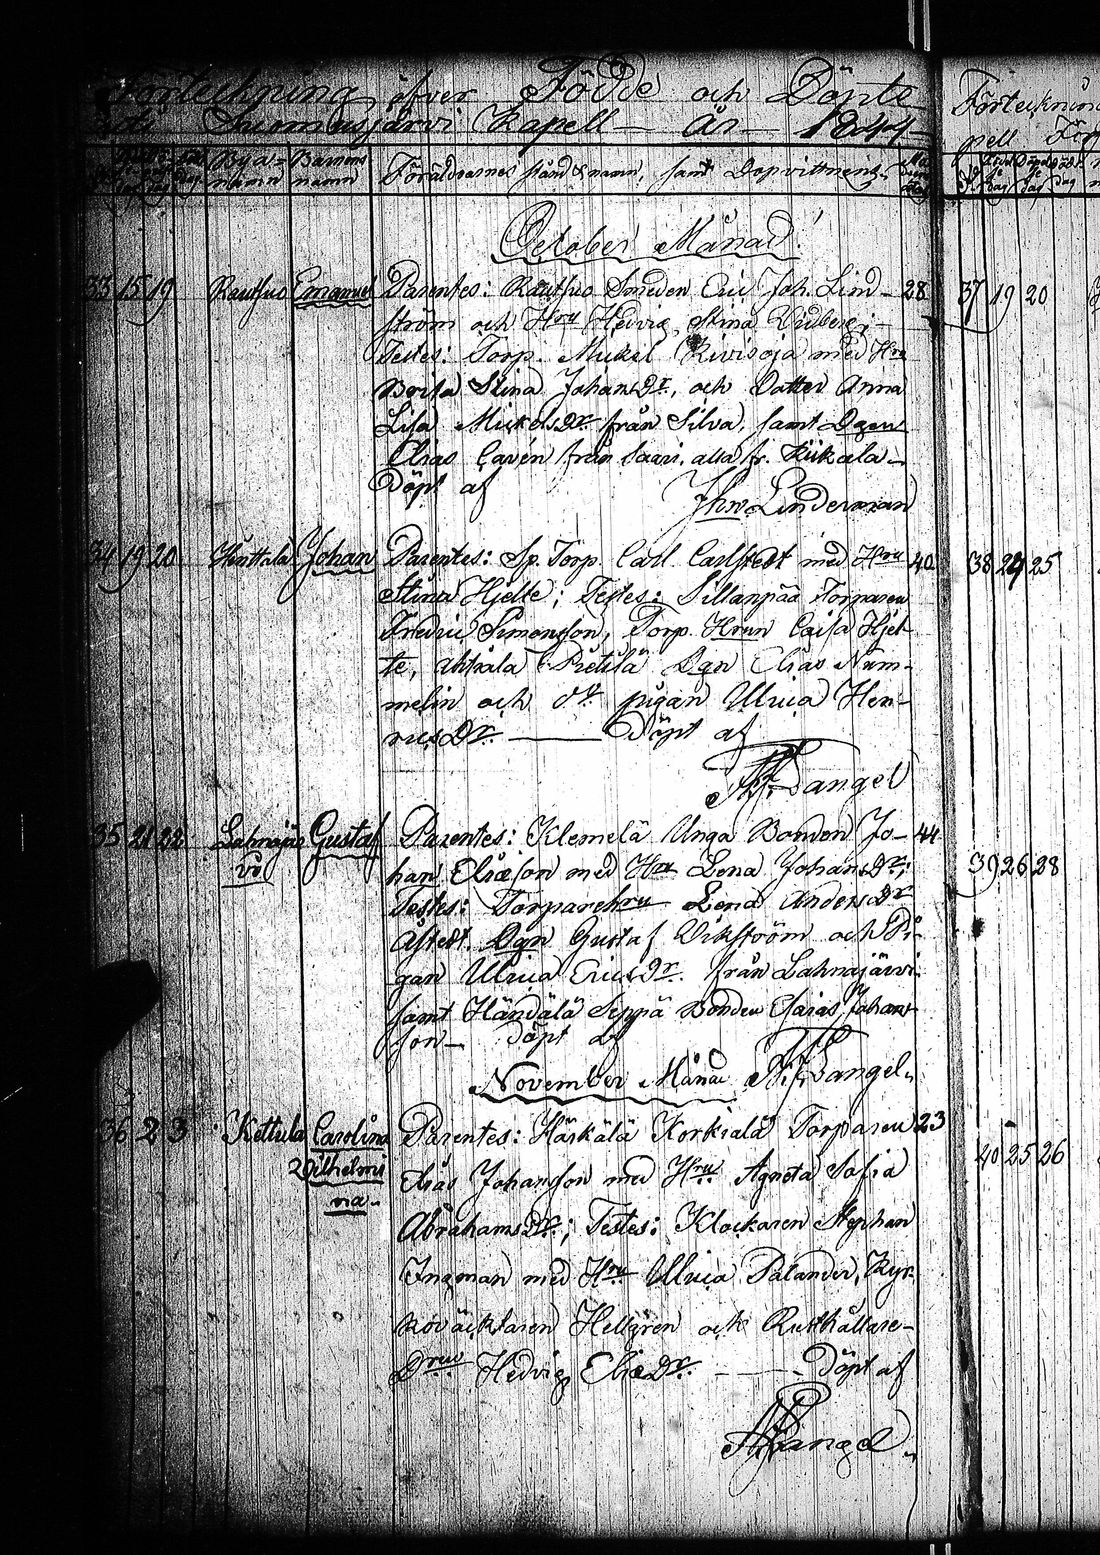 Förteckning öfver Födde och Döpte
uti Suomusjärvi Kapell — År — 1844
Bya-namn Barnens namn Föräldrarnes stånd & namn, samt Dopvittnen
October Månad
33 15 19 Rautsuo Emanuel Parentes: Rautsuo Smeden Eric Joh. Lind- 28
ström och Hru Hedvig Stina Vidberg;
Testes: Torp. Mickel Kivisoja med Hru
Borita Stina JohansDr, och Dotter Anna
Lisa MickelsDr från Silva, samt Dgen
Elias Cavén från Saari, alla fr. Kiikala —
Döpt af Jhn Linderman
34 19 20 Hinttala Johan Parentes: Sp. Torp. Carl Carlstedt med Hru 40
Stina Hjelte; Testes: Sillanpää Torparen
Fredric Simonsson, Torp. Hrun Caisa Hjel-
te, Ahtiala Pietilä Dgn Elias Num-
melin och pigan Ulrica Hen-
ricsDr. — Döpt af
Tangel
35 21 22 Lahnajär Gustaf Parentes: Klemelä Unga Bonden Jo- 44
vi han Eliæson med Hru Lena JohansDr;
Testes: Torparehru Lena AndersDr
Afstedt. Dgn Gustaf Vikström och Pi-
gan Ulrica EricsDr. från Lahnajärvi
samt Händälä Seppä Bonden Esaias Johans-
son — Döpt af
November Månad Tangel
36 2 3 Kettula Carolina Parentes: Härkälä Korkiala Torparen 23
Vilhelmi Elias Johansson med Hru Agneta Sofia
na. AbrahamsDr; Testes: Klockaren Stephan
Ingman med Hru Ulrica Palander, Kyr-
koväcktaren Hellgren och Rusthållare-
Drun Hedvig EliæDr. — Döpt af
Tangel
Förteckning
pell För
37 19 20
38 24 25
39 26 28
40 25 26